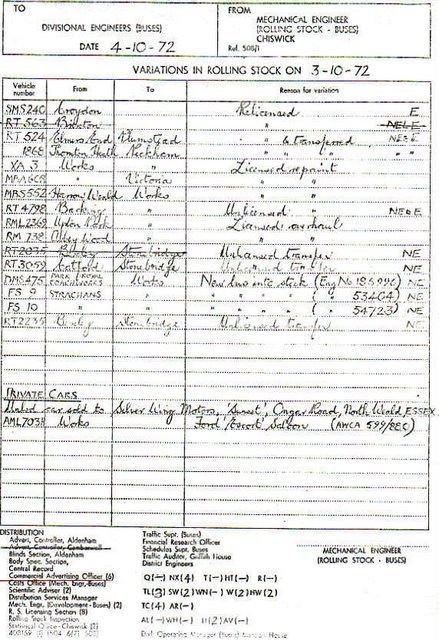 TO
DIVISIONAL ENGINEERS (BUSES)
DATE 4-10-72
FROM
MECHANICAL ENGINEER
(ROLLING STOCK - BUSES)
CHISWICK
Ref. 508/1
VARIATIONS IN ROLLING STOCK ON 3-10-72
Vehicle number From To Reason for variation
SMS240 Croydon Relicensed E
RT 563 Brixton " NELE
RT 524 Elmers End Plumstead " & transferred NE&E
1868 Thornton Heath Peckham " " " "
XA 3 Works Licensed repaint
" Victoria " "
MBS552 Harrow Weald Works " "
RT 4798 Barking " Unlicensed " NE&E
RML2369 Upton Park " Licensed overhaul
RM 738 Abbey Wood " " "
RT2035 Bexley Stonebridge Unlicensed transfer NE
RT3059 Catford Stonebridge Unlicensed transfer NE
DMS475 PARK ROYAL COACHWORKS Works New bus into stock (Eng No ) NE
FS 9 STRACHANS " " " " " ( " 53404) NE
FS 10 " " " " " " ( " 54723) NE
RT2235 Bexley Stonebridge Unlicensed transfer NE
PRIVATE CARS
car sold to Silver Wing Motors, 'Sunset', Ongar Road, North Weald, ESSEX
AML703H Works Ford 'Escort' Saloon (AWCA 599/BEC)
DISTRIBUTION
Advert. Controller, Aldenham
Advert. Controller, Camberwell
Blinds Section, Aldenham
Body Spec. Section,
Central Record
Commercial Advertising Officer (6)
Costs Office (Mech. Engr. Buses)
Scientific Adviser (2)
Distribution Services Manager
Mech. Engr. (Development - Buses) (2)
R. S. Licensing Section (8)
Rolling Stock Inspection
Statistical Office - Chiswick (2)
Traffic Supt. (Buses)
Financial Research Officer
Schedules Supt. Buses
Traffic Auditor, Griffith House
District Engineers
Q(-) NX(4) T(-) HT(-) R(-)
TL(3) SW(2) WN(-) W(2) HW(2)
TC(4) AR(-)
AL(-) WH(-) U(2) AV(-)
Divl. Operating Manager (Buses)
MECHANICAL ENGINEER
(ROLLING STOCK - BUSES)